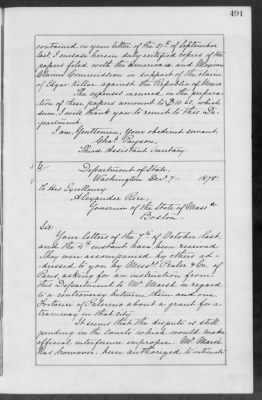 491
contained in your letter of the 27th of September
last I enclose herein duly certified copies of the
papers filed with the American and Mexican
Claims Commission in support of the claim
of Edgar Kellar against the Republic of Mexico
The expenses incurred, in the prepara-
tion of these papers amount to $10.62, which
sum, I will thank you to remit to this De-
partment.
I am, Gentlemen, Your obedient servant,
Chas. Payson,
Third Assistant Secretary
Department of State,
Washington Dec. 7 1878.
To His Excellency
Alexander Rice,
Governor of the State of Mass
Boston
Sir:
Your letters of the 7th of October last,
and the 4th instant have been received
They were accompanied by others ad-
dressed to you by Messrs Bates & Co. of
Paris asking for an instruction from
this Department to Mr Marsh in regard
to a controversy between them and one
of Palermo about a grant for a
tramway in that city
It seems that the dispute is still
pending in the courts which would make
official interference improper. Mr Marsh
has however been authorized to intimate